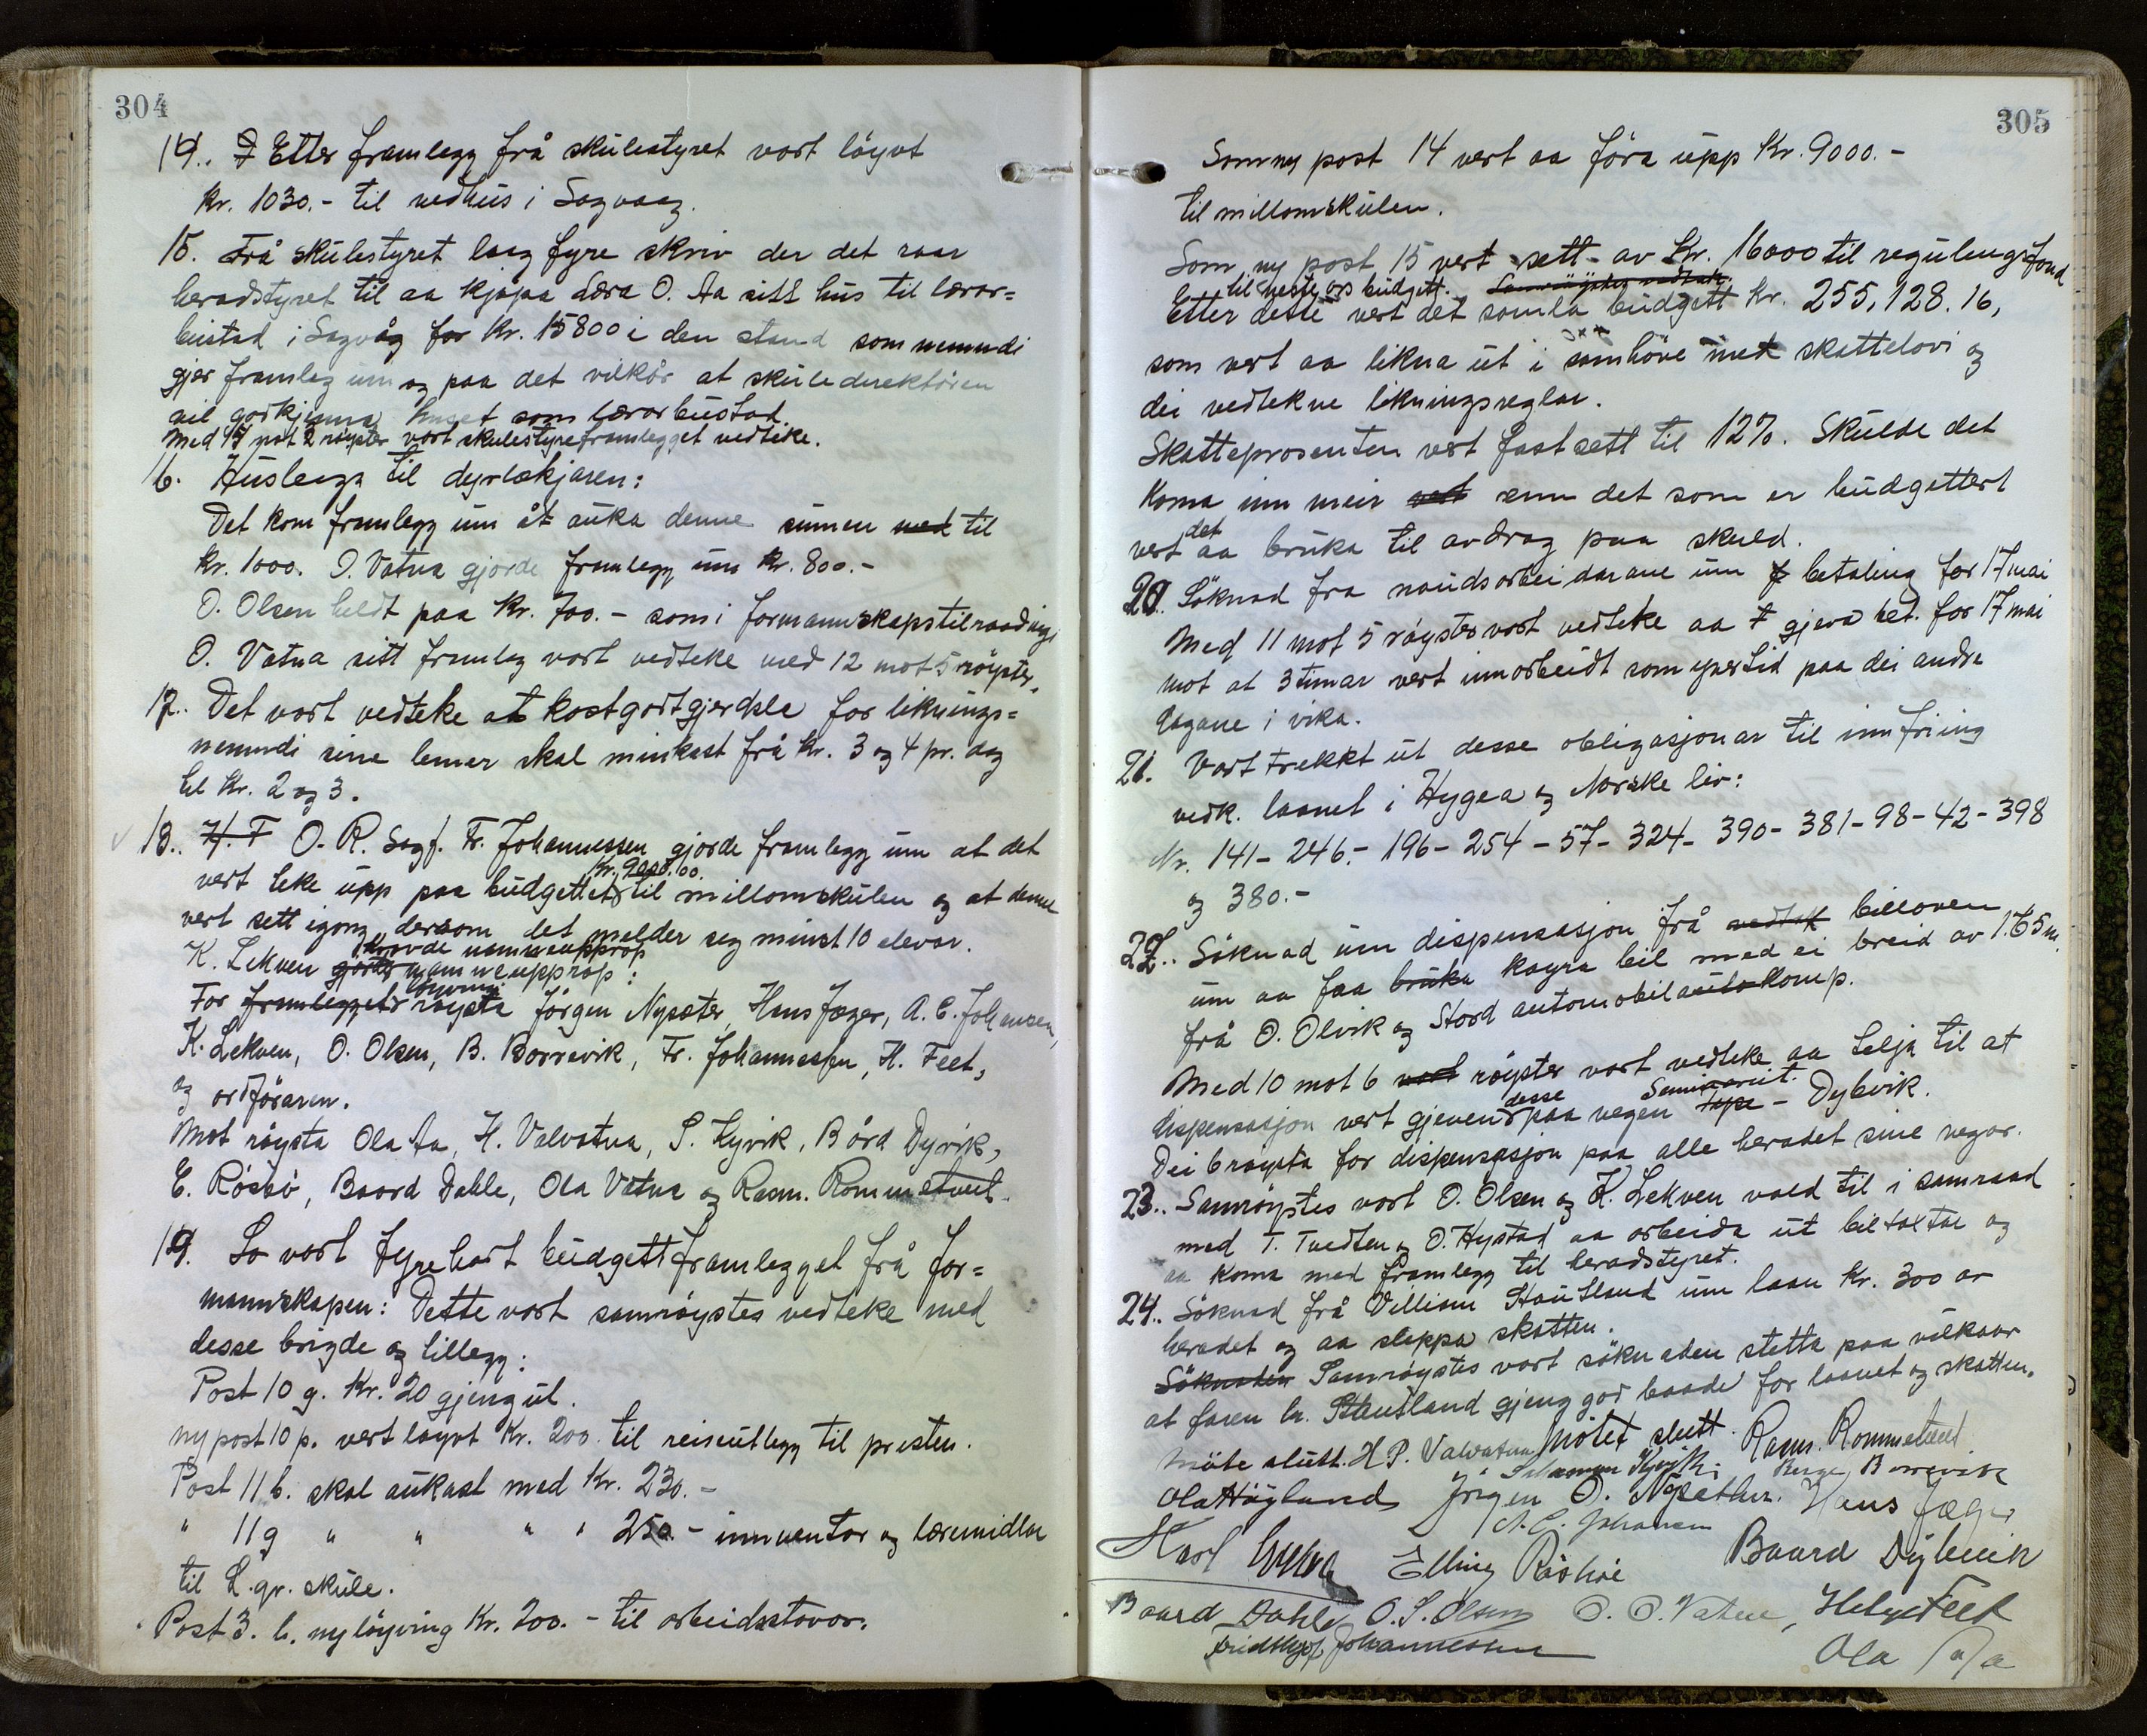 304
14. Etter framlegg frå skulestyret vart löyvt
kr. 1030.- til vedhus i Sagvaag.
15. Frå skulestyret laag fyre skriv der det raar
heradstyret til aa kjöpa Lera O. Aa sitt hus til lærar=
bustad i Sagvåg for Kr. 15800 i den stand som nemndi
gjer framlag um og paa det vilkår at skuledirektören
vil godkjenna huset som lærarbustad.
Med 15 mot 2 röyster vart skulestyreframlegget vedteke.
16. Husleiga til dyrlækjaren:
Det kom framlegg um åt auka denne sumen med til
Kr. 1000. O. Vatna gjorde framlegg um Kr. 800.-
O. Olsen heldt paa Kr. 700.- som i formannskapstilraadingi
O. Vatna sitt framlag vart vedteke med 12 mot 5 röyster.
17. Det vart vedteke at kostgodtgjerdsle for liknings=
nemndi sine lemer skal minkast frå Kr. 3 og 4 pr. dag
til Kr. 2 og 3.
18. H. F O. R. Sagf. Fr. Johannessen gjorde framlegg um at det
Kr. 9000.00.
vert teke upp paa budgettet til millomskulen og at denne
vert sett igong dersom det melder seg minst 10 elevar.
kravde namneupprop
K. Lekven gjorde namneupprop:
löyving
For framlegget röysta Jörgen Nysæter, Hans Jæger, A. C. Johansen,
K. Lekven, O. Olsen, B. Borrevik, Fr. Johannessen, H. Feet,
og ordföraren.
Mot röysta Ola Aa, H. Valvatna, S. Kyvik, Bård Dyvik,
E. Rösbö, Baard Dahle, Ola Vatna og Rasm. Rommetveit.
19. So vart fyrehavt budgettframlegget frå for=
mannskapen: Dette vart samröystes vedteke med
desse brigde og tillegg:
Post 10 g. Kr. 20 gjeng ut.
ny post 10 p. vert löyvt Kr. 200 til reiseutlegg til presten.
Post 11 b. skal aukast med Kr. 230.-
" 11 g " " " " 250.- innventar og læremidlar
til L. gr. skule.
Post 3. b. ny löyving Kr. 200.- til arbeidsstovor.
305
Som ny post 14 vert aa föra upp Kr. 9000.-
til millomskulen.
Som ny post 15 vert sett av Kr. 16000 til regulingsfond
til neste års budgett. Samröystes vedteke
Etter dette vert det samla budgett Kr. 255,128.16,
som vert aa likna ut i samhöve med skattelovi og
dei vedtekne likningsreglar.
Skatteprosenten vert fastsett til 12%. Skulde det
koma inn meir vert enn det som er budgettert
det
vert aa bruka til avdrag paa skuld.
20. Söknad fra naudsarbeidarane um f betaling for 17 mai
Med 11 mot 5 röyster vart vedteke aa gjeva bet. for 17 mai
mot at 3 timar vert innarbeidt som yvertid paa dei andre
dagane i vika.
21. Vart trekkt ut desse obligasjonar til innfriing
vedk. laanet i Hygea og Norske liv:
Nr. 141- 246.- 196- 254- 57- 324- 390- 381- 98- 42- 398
og 380.-
22. Söknad um dispensasjon frå vedtak billoven
um aa faa bruka köyra bil med ei breid av 1.65 m.
frå O. Olvik og Stord automobilautokomp.
Med 10 mot 6 vart röyster vart vedteke aa telja til at
desse Seminariet.
dispensasjon vert gjeven paa vegen Lype - Dybvik.
Dei 6 röysta for dispensasjon paa alle heradet sine vegar.
23. Samröystes vart O. Olsen og K. Lekven vald til i samraad
med T. Tvedten og O. Hystad aa arbeida ut biltaxtar og
aa koma med framlegg til heradstyret.
24. Söknad frå Villiam Stautland um laan Kr. 300 av
heradet og aa sleppa skatten.
Söknaden Samröystes vart söknaden stetta paa vilkaar
at faren hr. Stautland gjeng god baade for laanet og skatten.
Möte slutt. H. P. Valvatna Mötet slutt. Rasm. Rommetveit
Salamon Kyvik. Berge Borrevik
Ola Höyland Jörgen O. Nysether. Hans Jæger
A. C. Johansen
Karl Lekven Elling Rösbö Baard Dybvik
Baard Dahle O. S. Olsen O. O. Vatna, Helge Feet
Fridthjof Johannessen Ola Aa